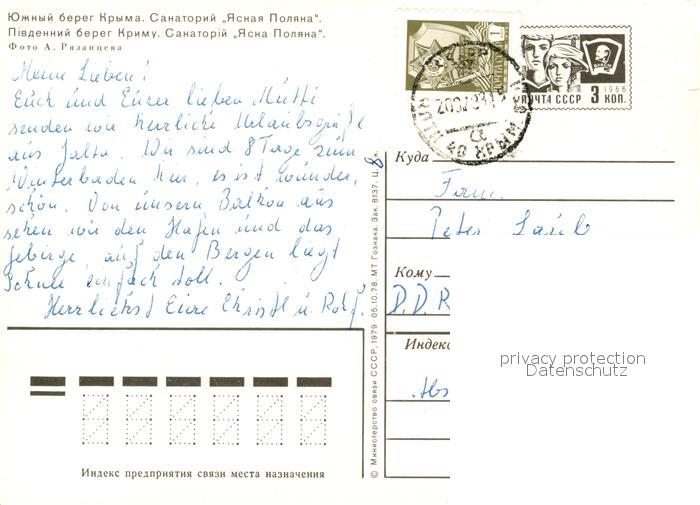 Южный берег Крыма. Санаторий „Ясная Поляна“.
Південний берег Криму. Санаторій „Ясна Поляна“.
Фото А. Рязанцева
Meine Lieben!
Euch und Eurer lieben Mutti
senden wir herrliche Urlaubsgrüße
aus Jalta. Wir sind 8 Tage zum
Winterbaden hier, es ist wunder,
schön. Von unserm Balkon aus
sehen wir den Hafen und das
Gebirge, auf den Bergen liegt
Schnee einfach toll.
Herrlichst Eure Christl u. Rolf.
ПОЧТА СССР
1
ПОЧТА СССР 3 КОП.
1966
Куда
Fam.
Peter
Кому
D.D.R
Индекс
privacy protection
Datenschutz
© Министерство связи СССР, 1979 05.10.78. МТ Гознака. Зак. 8137. Ц. 8 к.
Индекс предприятия связи места назначения